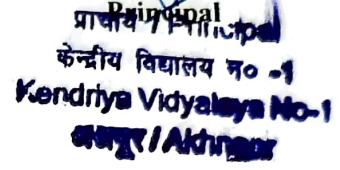 Principal
प्राचार्य / Principal
केन्द्रीय विद्यालय न० -1
Kendriya Vidyalaya No-1
/ Akhnoor